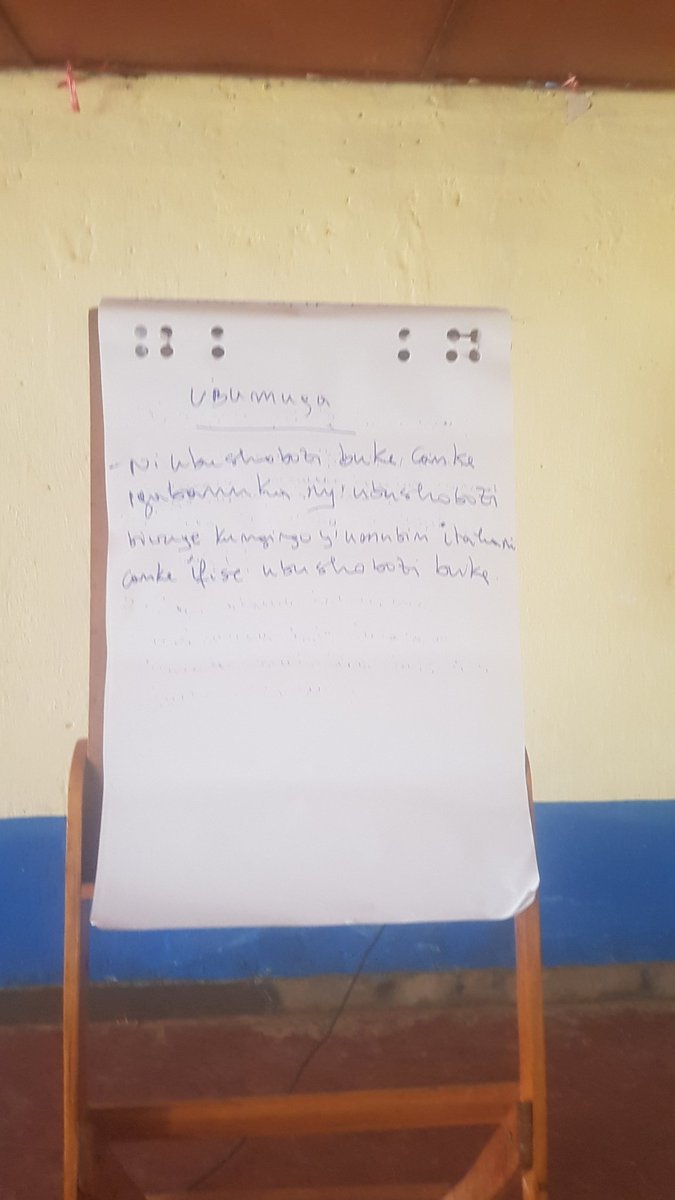 UBUMUGA
- Ni ubushobozi buke, canke
igabanuka ry'ubushobozi
bivuye kungingo y'umubiri itahari
canke ifise ubushobozi buke